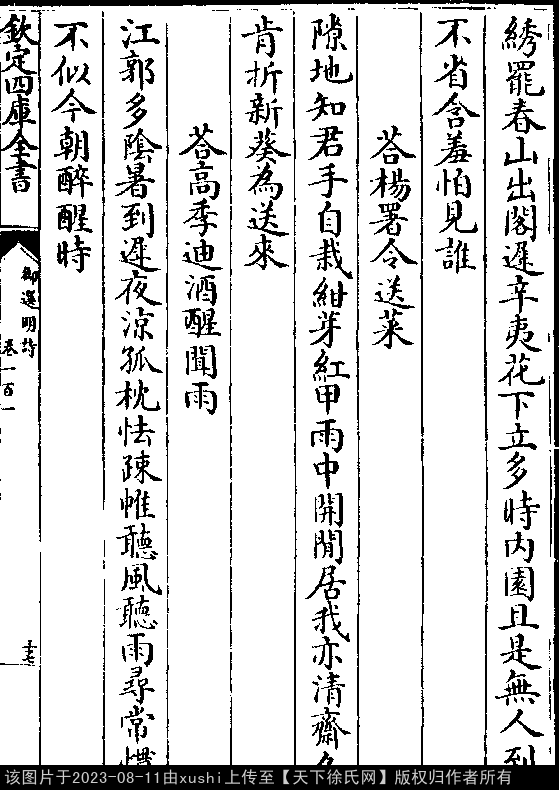 綉罷春山出閣遲辛夷花下立多時内園且是無人到
不省含羞怕見誰
荅楊署令送菜
隙地知君手自栽紺芽紅甲雨中開閒居我亦清齋久
肯折新葵為送來
荅高季迪酒醒聞雨
江郭多陰暑到遲夜涼孤枕怯疎帷聽風聽雨尋常慣
不似今朝醉醒時
欽定四庫全書
御選明詩
卷一百一
十七
该图片于2023-08-11由xushi上传至【天下徐氏网】版权归作者所有